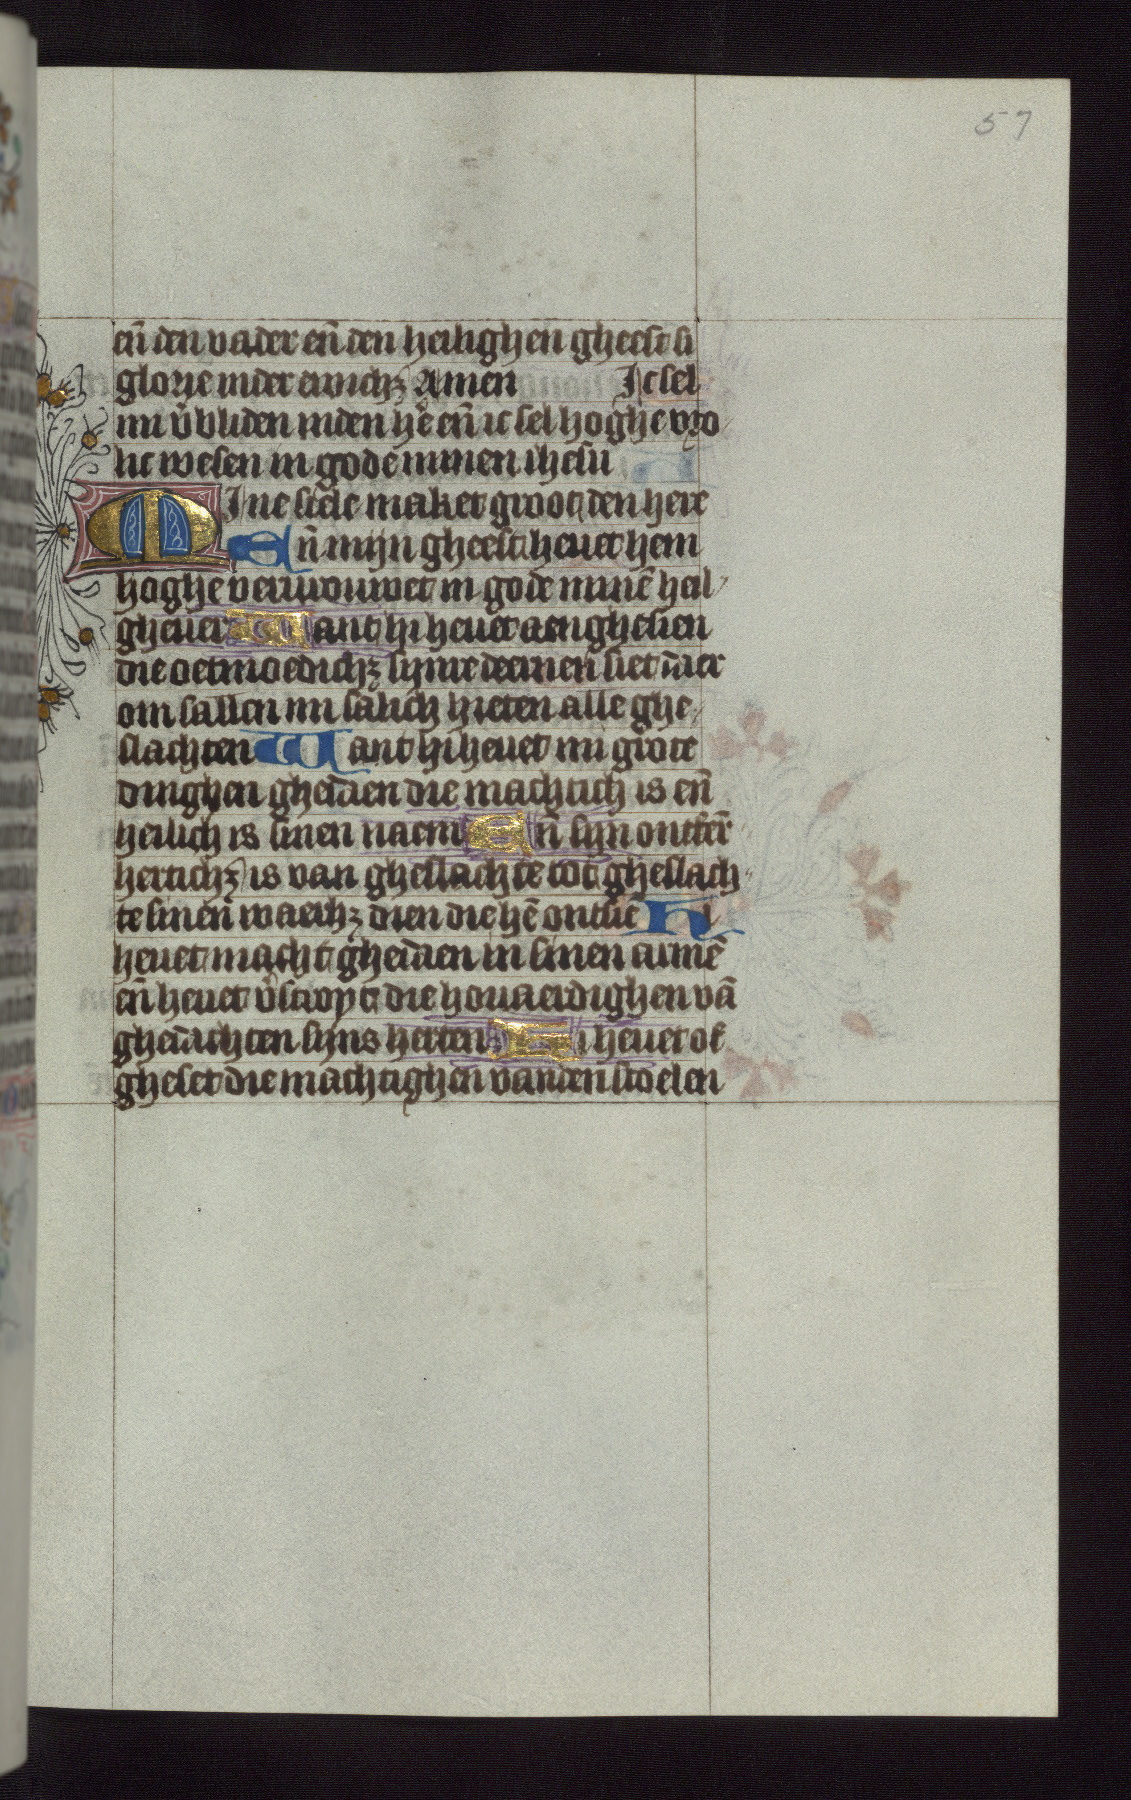 57
en̄ den vader en̄ den heilighen gheest si
glorie inder ewich₃ Amen Ic sel
mi v̄bliden inden hē en̄ ic sel hoghe vro
lic wesen in gode minen ihesu
MIne siele maket groot den here
En̄ mijn gheest heuet hem
hoghe vervrouwet in gode minē heil
gheuer Want hi heuet aenghesien
die oetmoedich₃ sijnre deernen siet
om sallen mi salich hieten alle ghe
slachten Want hi heuet mi grote
dinghen ghedaen die machtich is en̄
heilich is sinen naem En̄ sijn ontfer
hertich₃ is van gheslachte tot gheslach
te dien die hē ontsiē Hi
heuet macht ghedaen in sinen armē
en̄ heuet v̄stroyt die houaerdighen vā
ghedachten sijns herten Hi heuet of
gheset die machtighen vanden stoelen